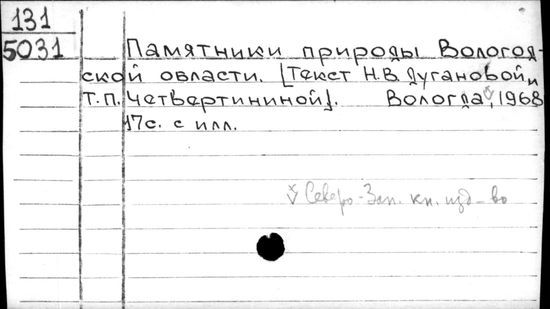 131
5031
Памятники природы Вологод-
ской области. [Текст Н.В. Дугановой и
Т.П. Четвертининой]. Вологда, 1968
17с. с илл.
Северо-Зап. кн. изд-во